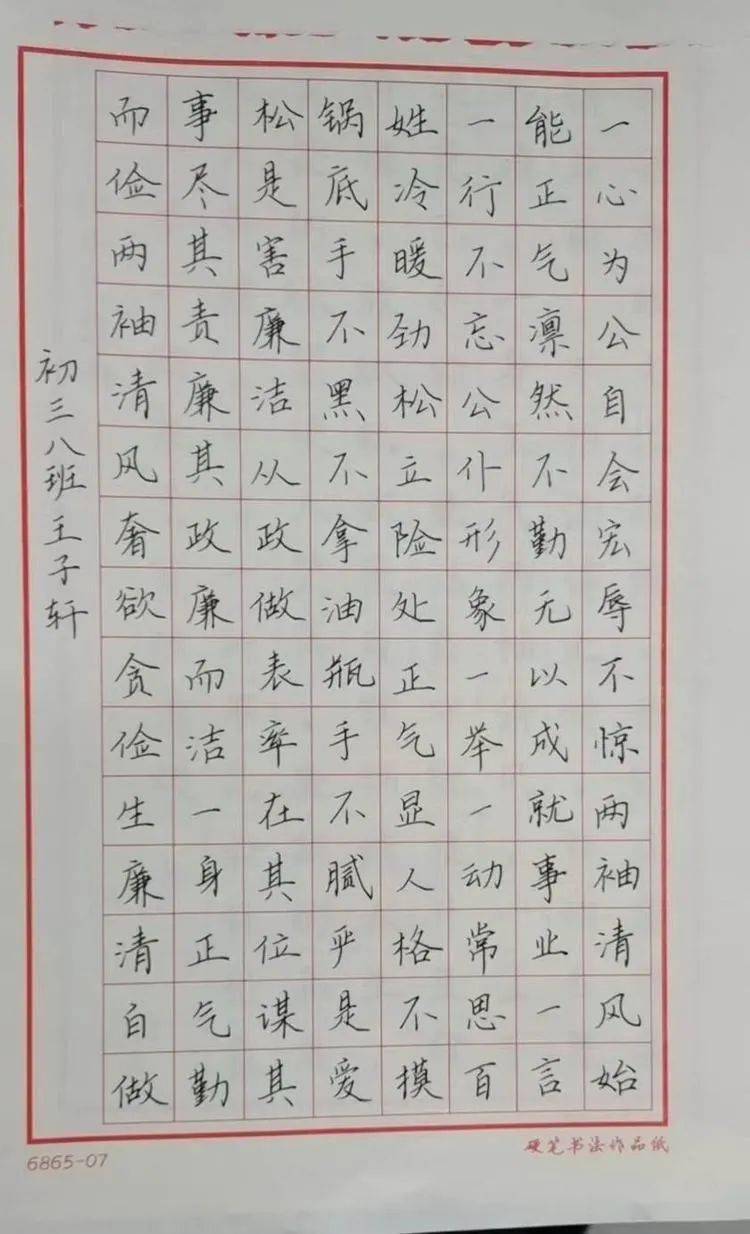 一心为公自会宏辱不惊两袖清风始
能正气凛然不勤无以成就事业一言
一行不忘公仆形象一举一动常思百
姓冷暖劲松立险处正气显人格不摸
锅底手不黑不拿油瓶手不腻严是爱
松是害廉洁从政政做表率在其位谋其
事尽其责廉其政廉而洁一身正气勤
而俭两袖清风奢欲贪俭生廉清自做
初三八班王子轩
6865-07
硬笔书法作品纸